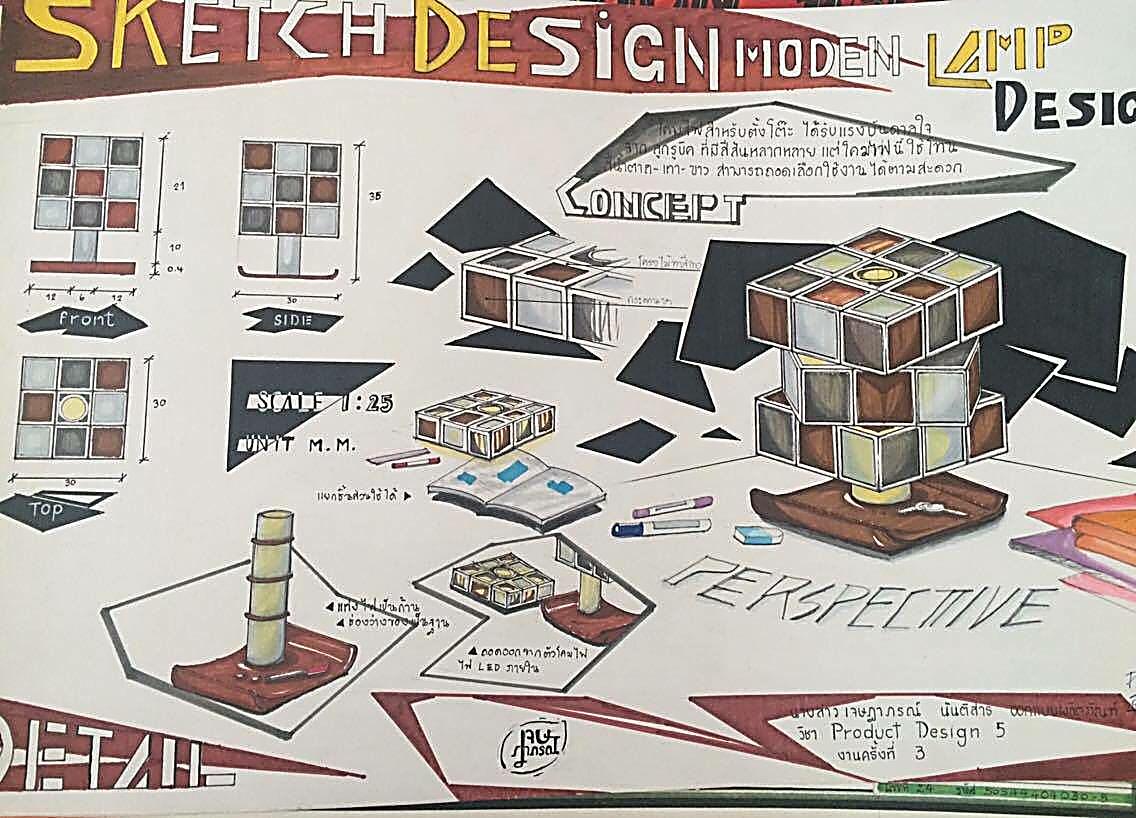 SKETCH DESIGN MODEN LAMP
DESIG
สำหรับตั้งโต๊ะ ได้รับแรงบันดาลใจ
จาก ลูกรูบิค ที่มีสีสันหลากหลาย แต่โคมไฟนี้ใช้โทน
สีน้ำตาล-เทา-ขาว สามารถถอดเลือกใช้งานได้ตามสะดวก
CONCEPT
21
10
0.4
12 6 12
Front
35
30
SIDE
30
30
TOP
SCALE 1:25
UNIT M.M.
แยกชิ้นส่วนใช้ได้
แท่งไฟเป็นก้าน
ช่องว่างของเป็นฐาน
ถอดออกจากตัวโคมไฟ
ไฟ LED ภายใน
PERSPECTIVE
DETAIL
เจษ
ฎาภรณ์
นางสาว เจษฎาภรณ์ นันติสาร ออกแบบผลิตภัณฑ์
วิชา Product Design 5
งานครั้งที่ 3
เลขที่ 24 รหัส